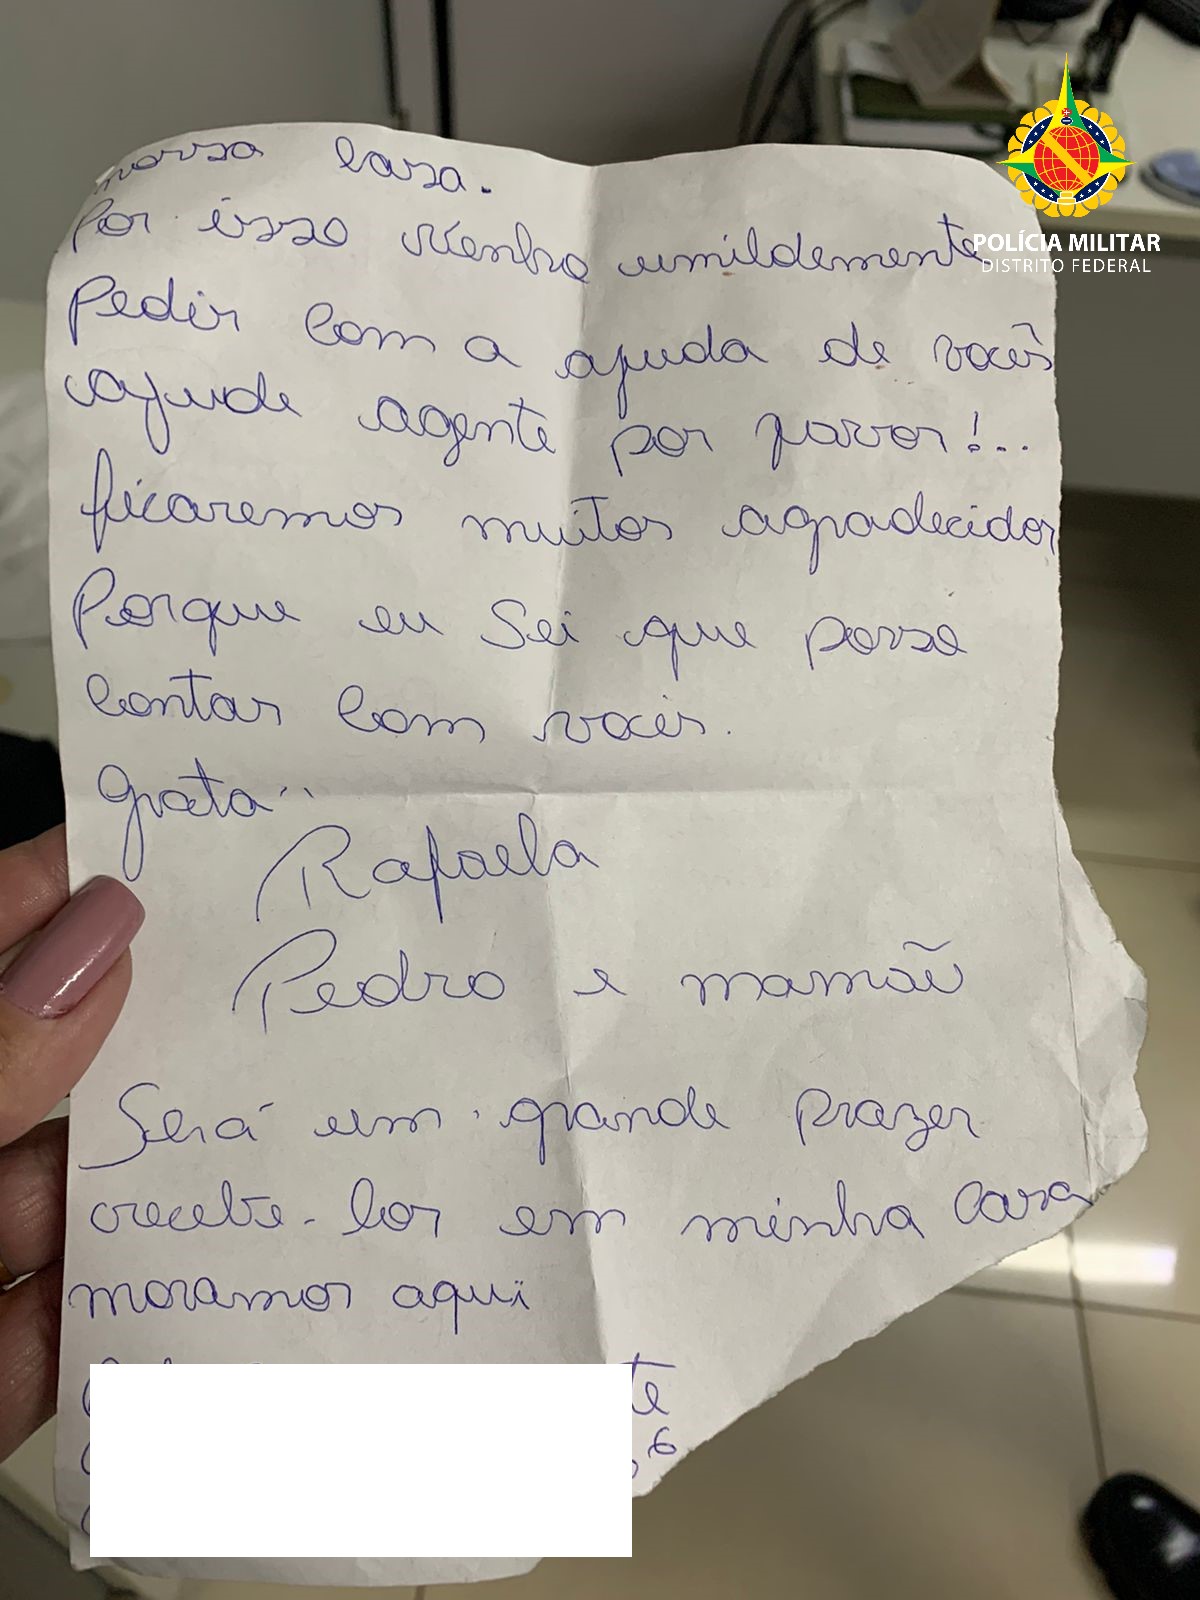 nossa casa.
Por isso venho umildemente
Pedir com a ajuda de vocês
ajude agente por favor!..
ficaremos muitos agradecidos
Porque eu Sei que posso
contar com voceis.
Grata..
Rafaela
Pedro e mamãe
Será um grande prazer
recebe-los em minha casa
moramos aqui
te
6
POLÍCIA MILITAR
DISTRITO FEDERAL